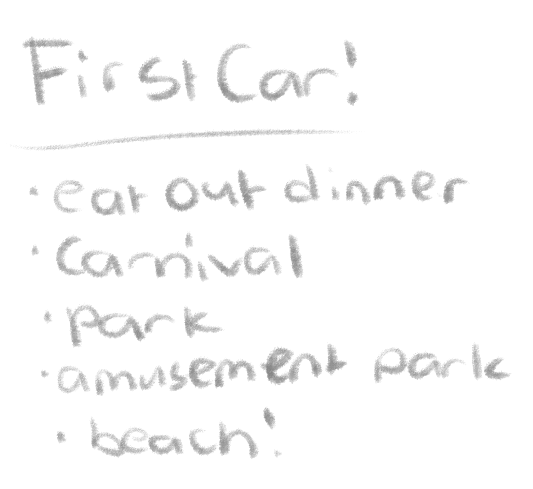 First Car!
· eat out dinner
· Carnival
· park
· amusement park
· beach!